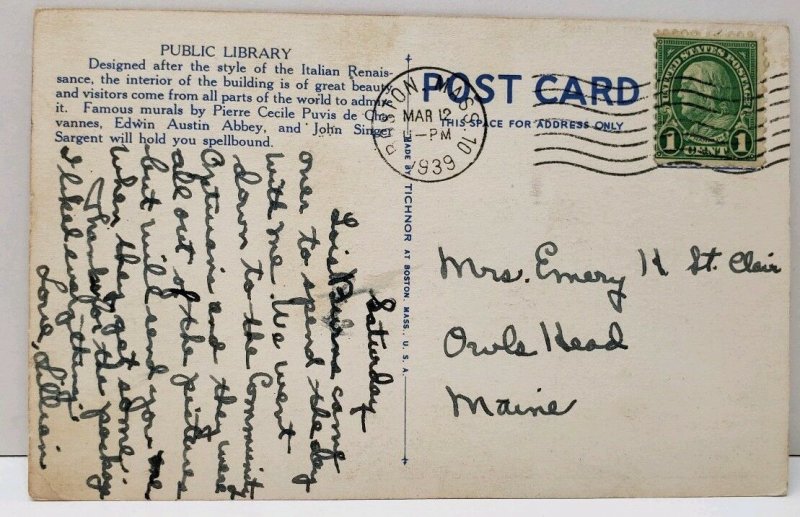 PUBLIC LIBRARY
Designed after the style of the Italian Renais-
sance, the interior of the building is of great beauty
and visitors come from all parts of the world to admire
it. Famous murals by Pierre Cecile Puvis de Cha-
vannes, Edwin Austin Abbey, and John Singer
Sargent will hold you spellbound.
POST CARD
THIS SPACE FOR ADDRESS ONLY
BOSTON MASS. 10
MAR 12
1-PM
1939
UNITED STATES POSTAGE
FRANKLIN
1 CENT 1
MADE BY TICHNOR AT BOSTON, MASS., U. S. A.
Saturday
Lois came
over to spend the day
with me. We went
down to the Community
Opticians and they were
all out of the pictures
but will send you one
when they get some.
Thanks for the package
I liked everything.
Love, Lillian
Mrs. Emery K St. Clair
Owls Head
Maine